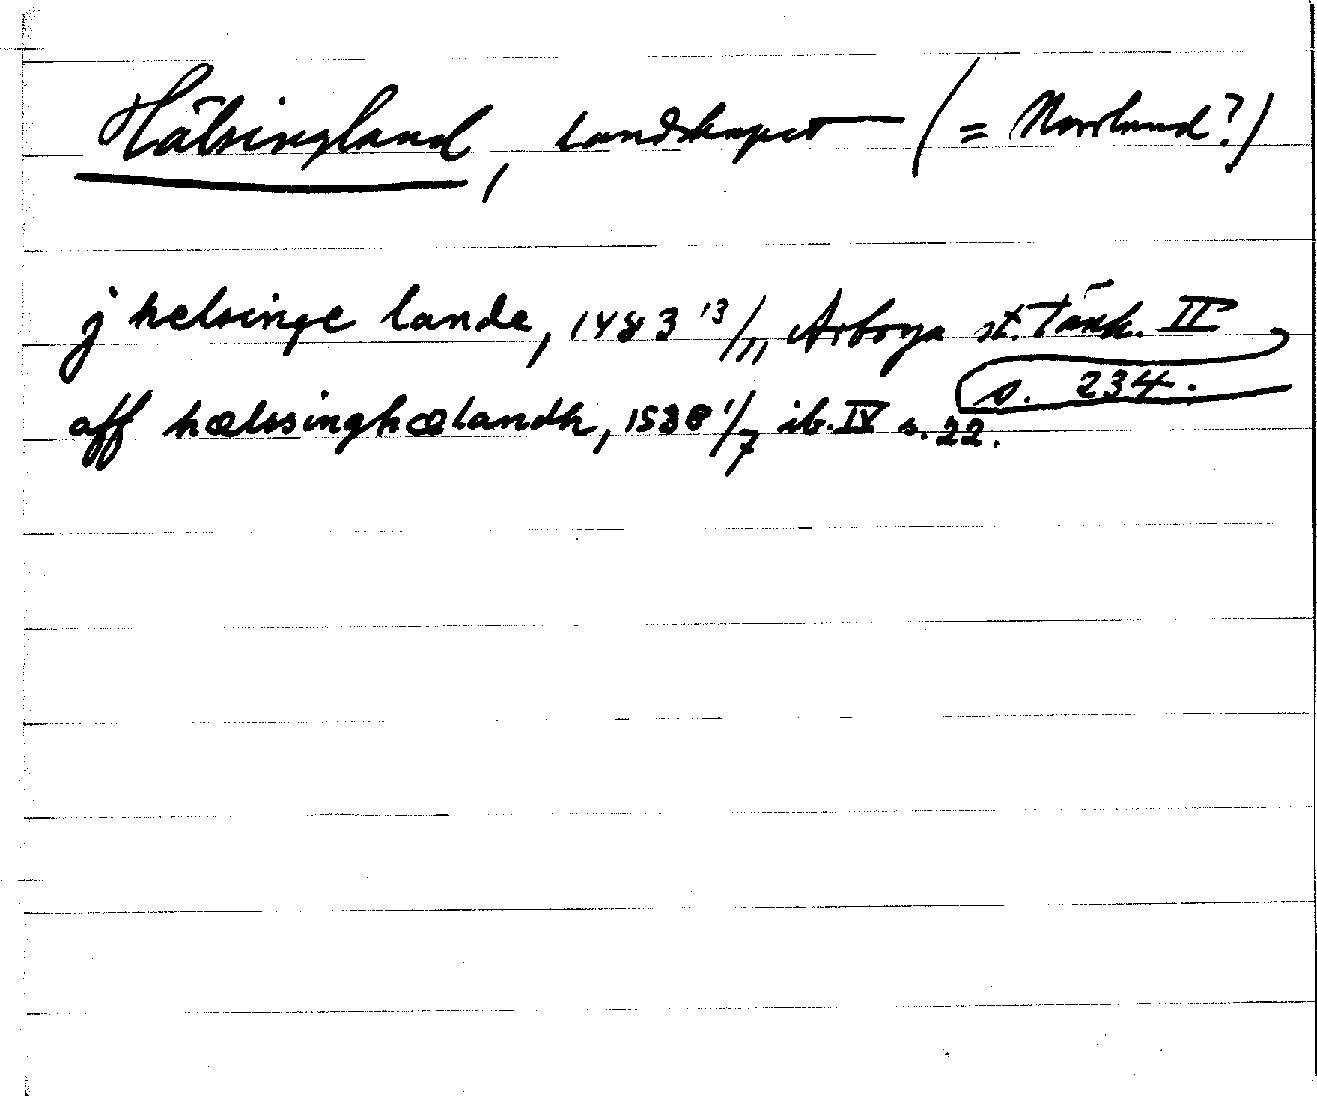 Hälsingland, landskapet (= Norrland?)
j helsinge lande, 1483 13/11, Arboga st. Tänk. II
s. 234.
aff hælssinghælandh, 1538 1/7 ib. IV s. 22.